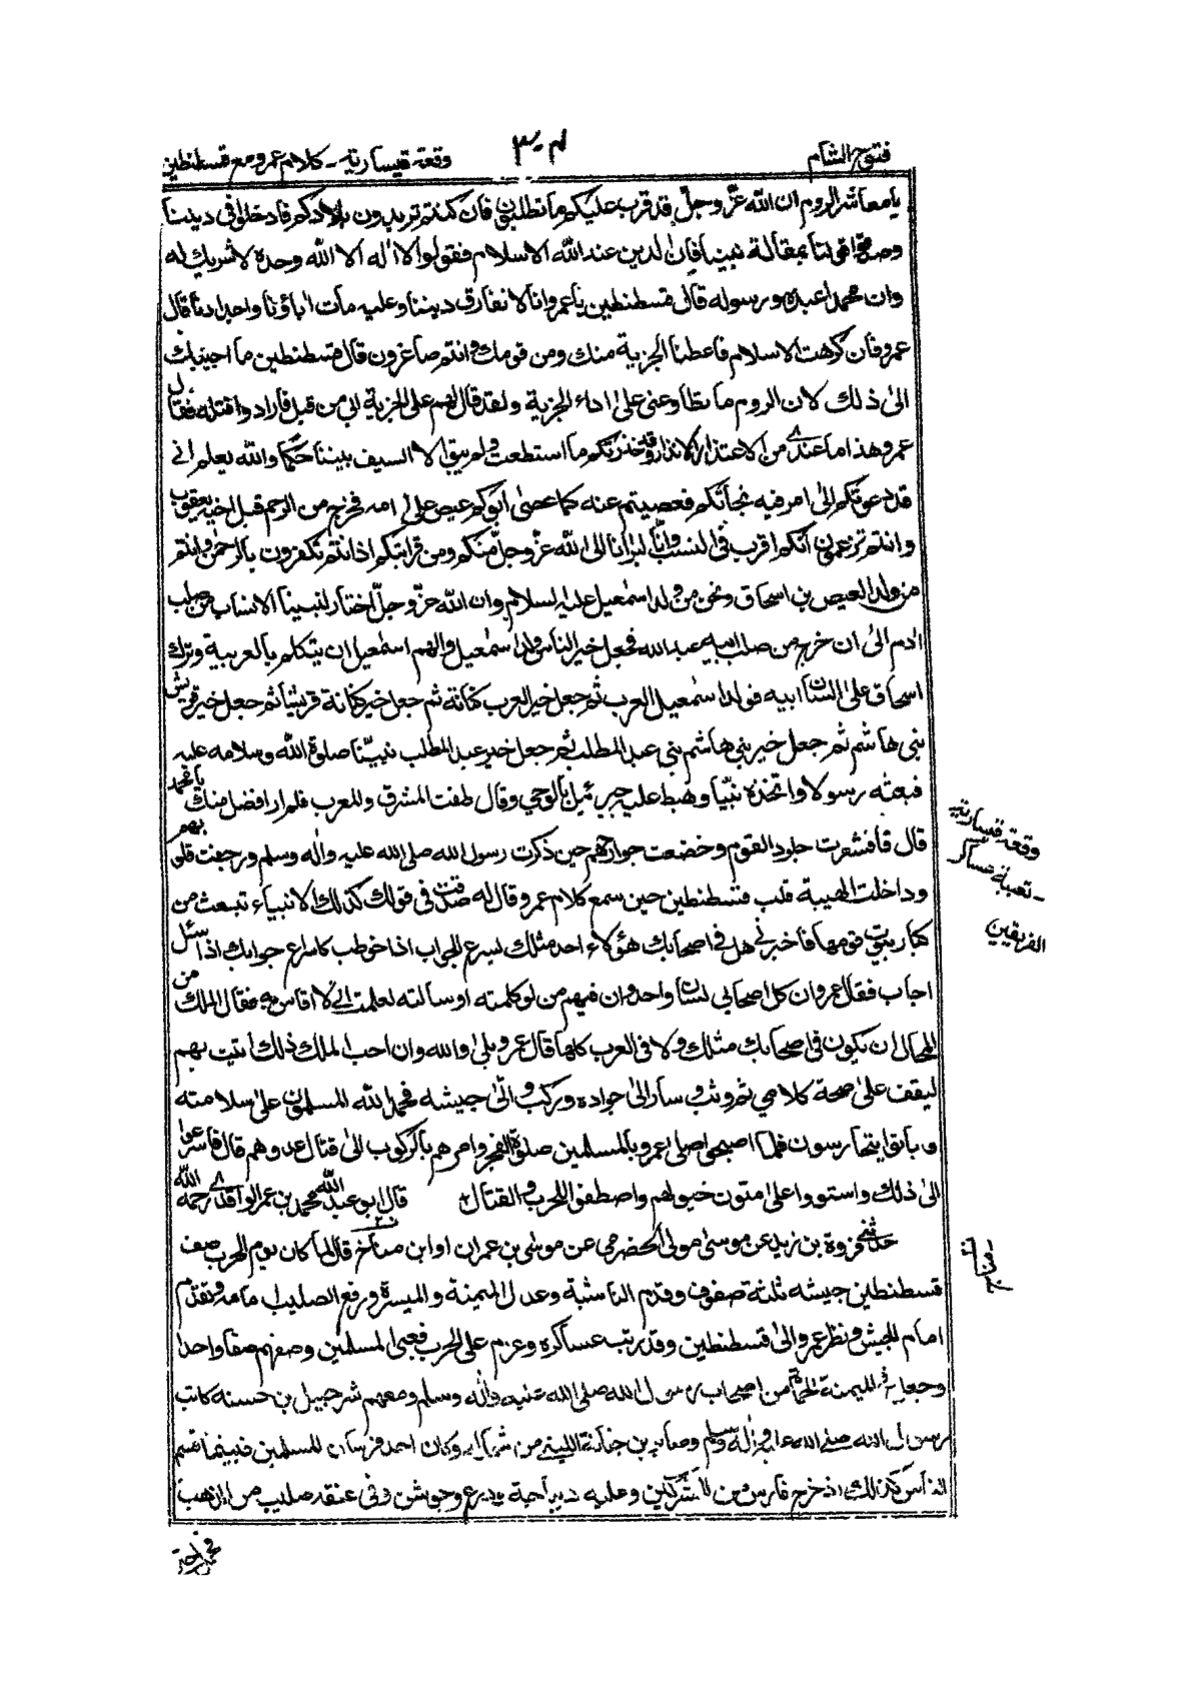 فتوح الشام
٣٠٤
وقعة قيسارية - كلام عمرو مع قسطنطين
يا معاشر الروم ان الله عزّ وجلّ قد قرب عليكم ما تطلبون فان كنتم تريدون بلادكم فادخلوا فى ديننا
وصدقوا قولنا بمقالة نبينا فان الدين عند الله الاسلام فقولوا لا اله الا الله وحده لا شريك له
وان محمدا عبده ورسوله قال قسطنطين يا عمرو انا لا نفارق ديننا وعليه مات اباؤنا واجدادنا قال
عمرو فان كرهت الاسلام فاعطنا الجزية منك ومن قومك وانتم صاغرون قال قسطنطين ما اجيبك
الى ذلك لان الروم ما تطاوعنى على اداء الجزية ولقد قال لهم على الجزية ابى من قبل فارادوا قتله فقال
عمرو هذا ما عندى من الاعتذار والانذار وقد حذرتكم ما استطعت ولم يبق الا السيف بيننا حكما والله يعلم انى
قد دعوتكم الى امر فيه نجاتكم فعصيتم عنه كما عصى ابوكم عيص على امه فخرج من الرحم قبل اخيه يعقوب
وانتم تزعمون انكم اقرب فى النسب وانا لبرآنا الى الله عزّ وجلّ منكم ومن قرابتكم اذ انتم تكفرون بالرحمن وانتم
من ولد العيص بن اسحاق ونحن من ولد اسمعيل عليه السلام وان الله عزّ وجلّ اختار لنبينا الانساب من صلب
ادم الى ان خرج من صلب ابيه عبد الله فجعل خير الناس ولد اسمعيل والهم اسمعيل ان يتكلم بالعربية وترك
اسحاق على لسان ابيه فولد اسمعيل العرب ثم جعل خير العرب كنانة ثم جعل خير كنانة قريشا ثم جعل خير قريش
بنى هاشم ثم جعل خير بنى هاشم بنى عبد المطلب ثم جعل خير عبد المطلب نبيّنا صلوة الله وسلامه عليه
فبعثه رسولا واتخذه نبيّا وهبط عليه جبرئيل بالوحي وقال طفت المشرق والمغرب فلم ار افضل منك يا محمد
قال فاقشعرت جلود القوم وخضعت جوارحهم حين ذكرت رسول الله صلى الله عليه واله وسلم ورجفت قلوبهم
وداخلت الهيبة قلب قسطنطين حين سمع كلام عمرو وقال له صدقت فى قولك كذلك الانبياء تبعث من
كبار بيوت قومها فاخبرنى هل فى اصحابك هؤلاء احد مثلك يسرع الجواب اذا خوطب كاسراع جوابك اذا سئل
اجاب فقال عمرو ان كل اصحابى لسان واحد وان فيهم من لو كلمته او سألته لعلمت انى لا اقاس به فقال الملك من
المحال ان يكون فى اصحابك مثلك ولا فى العرب كلها قال عمرو بلى والله وان احب الملك ذلك اتيت بهم
ليقف على صحة كلامي ثم وثب وسار الى جواده وركب واتى جيشه فحمد الله المسلمون على سلامته
وباتوا يتحارسون فلما اصبحوا صلى عمرو بالمسلمين صلوة الفجر وامرهم بالركوب الى قتال عدوهم قال فاسرعوا
الى ذلك واستووا على متون خيولهم واصطفوا للحرب والقتال قال ابو عبد الله محمد بن عمر الواقدى رحمه الله
حدثنى فروة بن زيد عن موسى مولى الحضرمي عن موسى بن عمران قال لما كان يوم الحرب صف
قسطنطين جيشه ثلثة صفوف وقدم الناشبة وعدل الميمنة والميسرة ورفع الصليب امامه وتقدم
امام الجيش ونظر عمرو الى قسطنطين وقد رتب عساكره وعزم على الحرب فعبى المسلمين وصفهم صفا واحدا
وجعل فى الميمنة من اصحاب رسول الله صلى الله عليه واله وسلم ومعهم شرحبيل بن حسنه كاتب
رسول الله صلى الله عليه واله وسلم وصابر بن جنانة الليثى من شماله وكان احد فرسان المسلمين فبينما قسم
الناس كذلك اذ خرج فارس من المشركين وعليه ديباجة ودرع وجوشن وفى عنقه صليب من الذهب
وقعة قيسارية
- تعبية عساكر
الفريقين